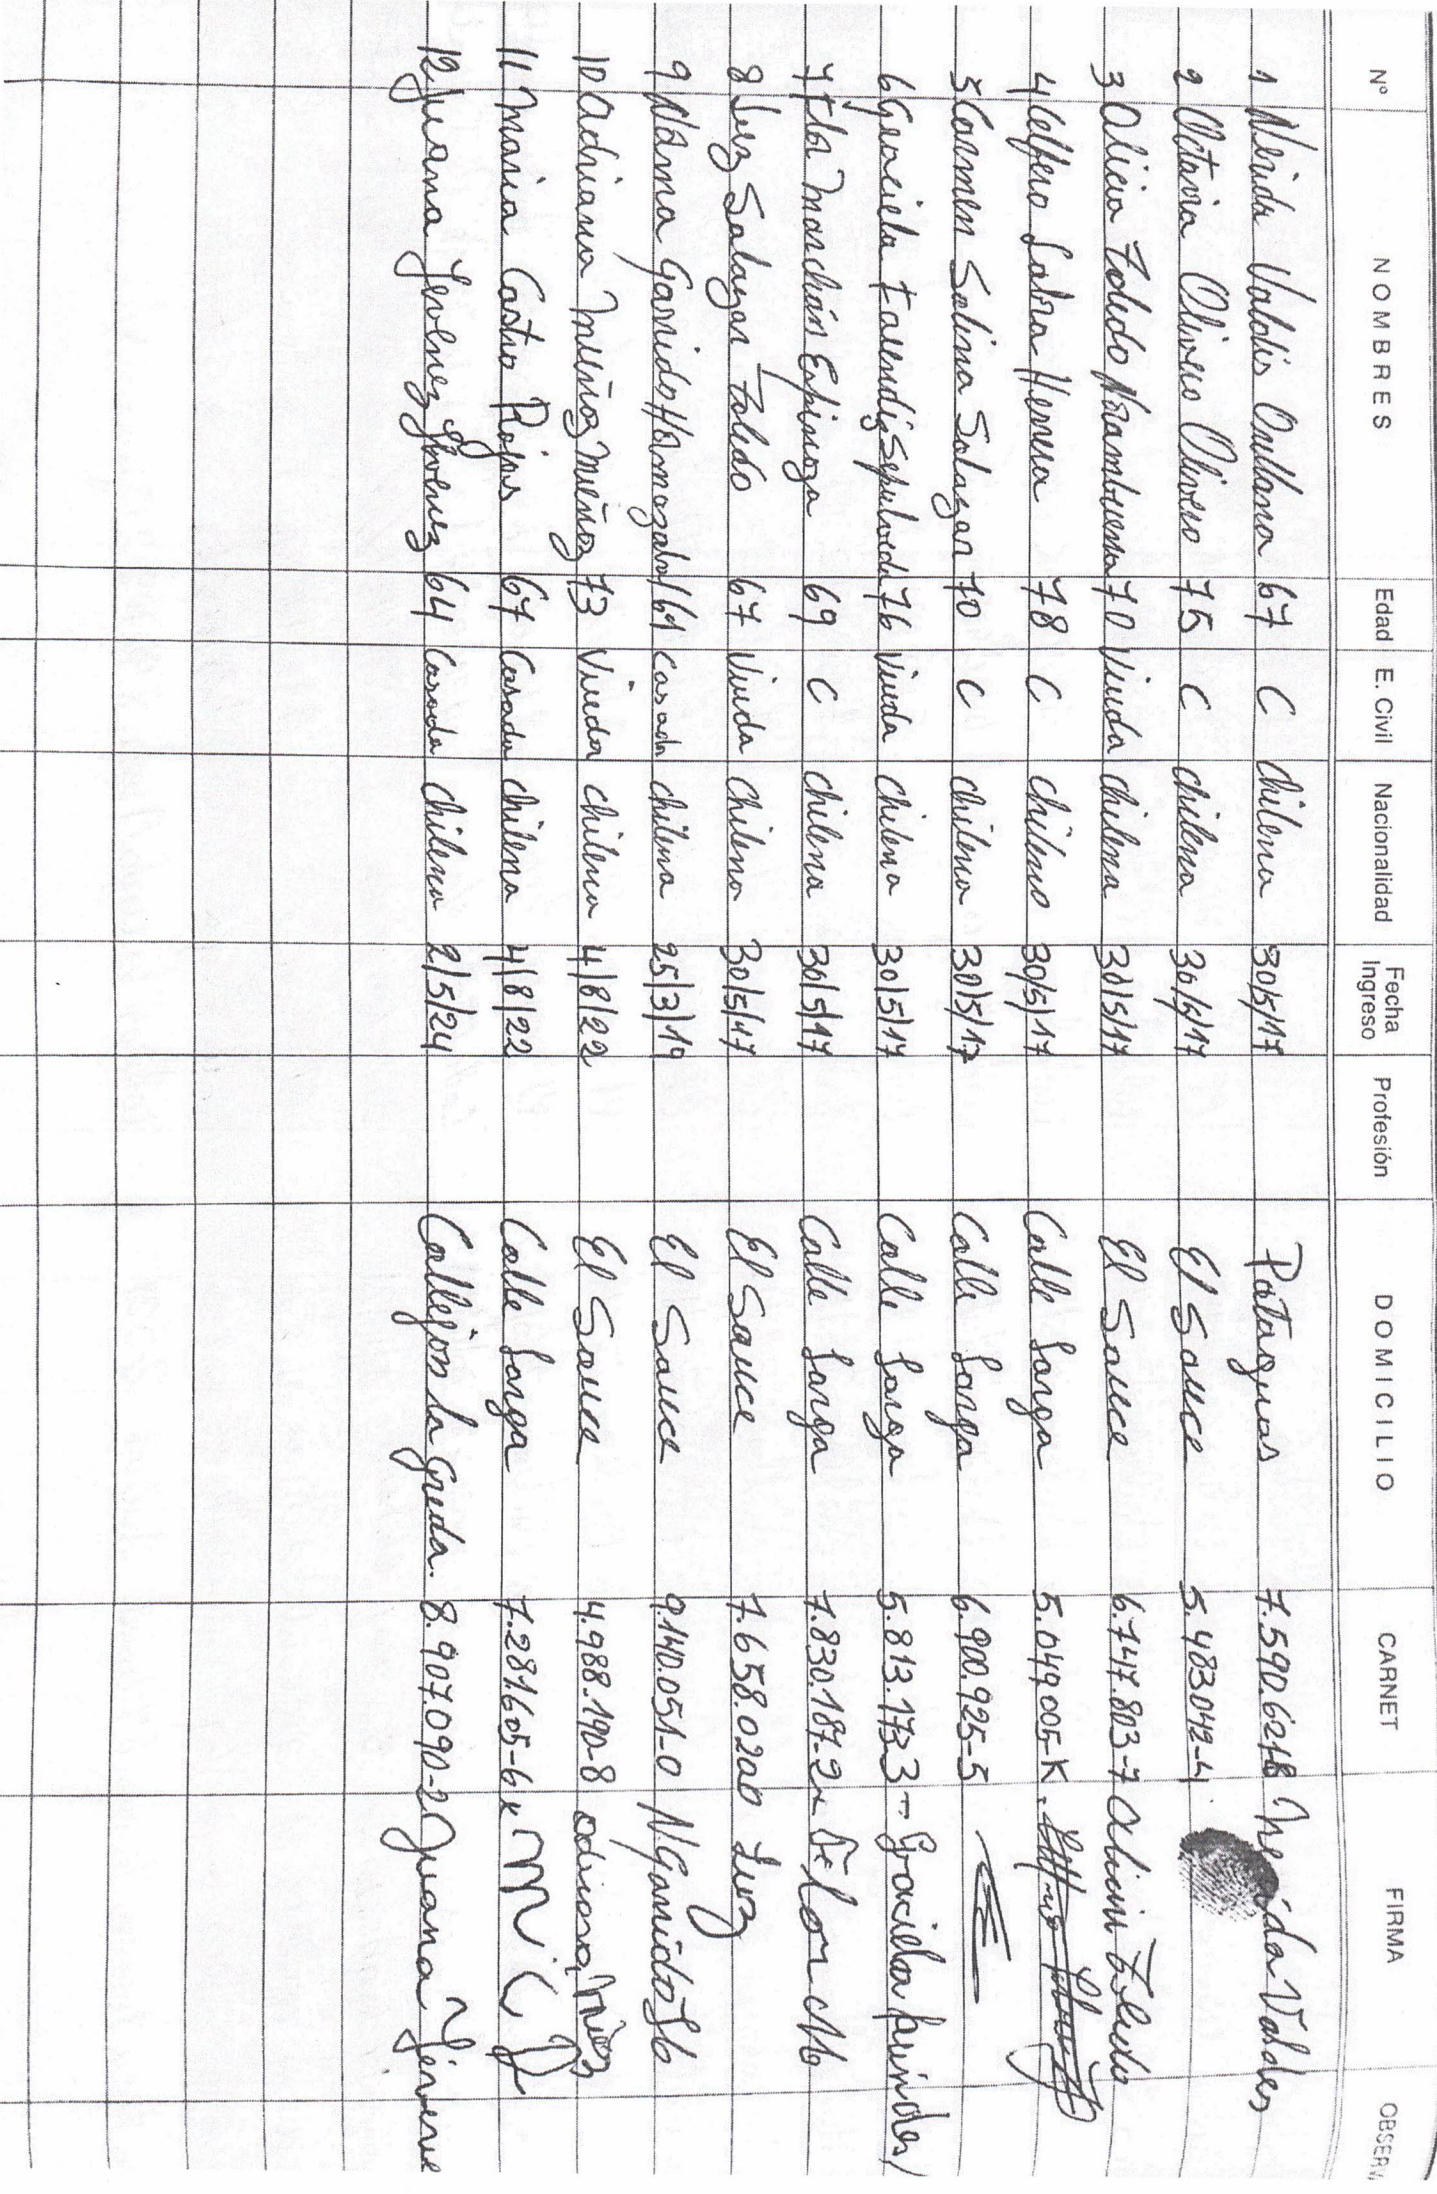 Nº NOMBRES Edad E. Civil Nacionalidad Fecha Ingreso Profesión DOMICILIO CARNET FIRMA OBSERV
1 Nerida Valdis Orellana 67 C chilena 30/5/17 Pataguas 7.590.621-8 Nerida Valdes
2 Octavia Olivero Olivero 75 C chilena 30/5/17 El Sauce 5.483042-4
3 Alicia Toledo Norambuena 70 Viuda chilena 30/5/17 El Sauce 6.747.803-7 Alicia Toledo
4 Labra Herrera 78 C chileno 30/5/17 Calle Larga 5.049.005-K
5 Carmen Salina Salazar 70 C chilena 30/5/17 Calle Larga 6.900.925-5
6 Graciela Faundis Sepulveda 76 Viuda chilena 30/5/17 Calle Larga 5.813.173-3 Graciela
7 Flor Marchán Espinoza 69 C chilena 30/5/17 Calle Larga 7.830.187-2 Flor
8 Luz Salazar Toledo 67 Viuda Chilena 30/5/17 El Sauce 7.658.020 Luz
9 Norma Garrido Hormazabal 61 Casada chilena 25/3/19 El Sauce 9.140.051-0 N.Garrido
10 Adriana Muñoz Muñoz 73 Viuda chilena 4/8/22 El Sauce 4.988.190-8 Adriana
11 Maria Castro Rojas 67 Casada chilena 4/8/22 Calle Larga 7.281605-6 M. C R
12 Juana Jimenez Jimenez 64 Casada chilena 2/5/24 Callejon la Greda. 8.907.090-2 Juana